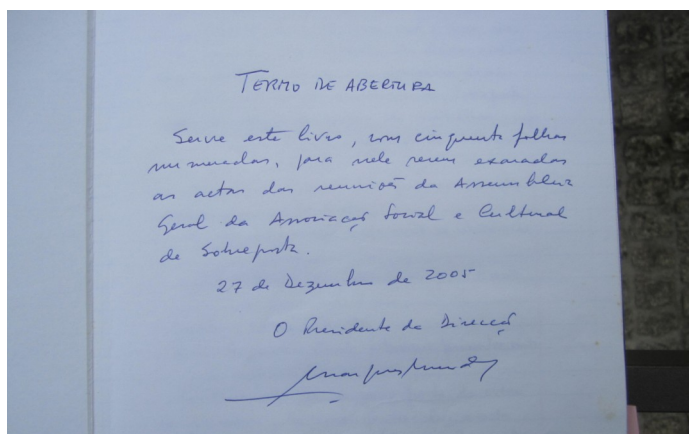 TERMO DE ABERTURA
Serve este livro, com cinquenta folhas
numeradas, para nele serem exaradas
as actas das reuniões da Assembleia
Geral da Associação Social e Cultural
de Sobreposta.
27 de Dezembro de 2005
O Presidente da Direcção